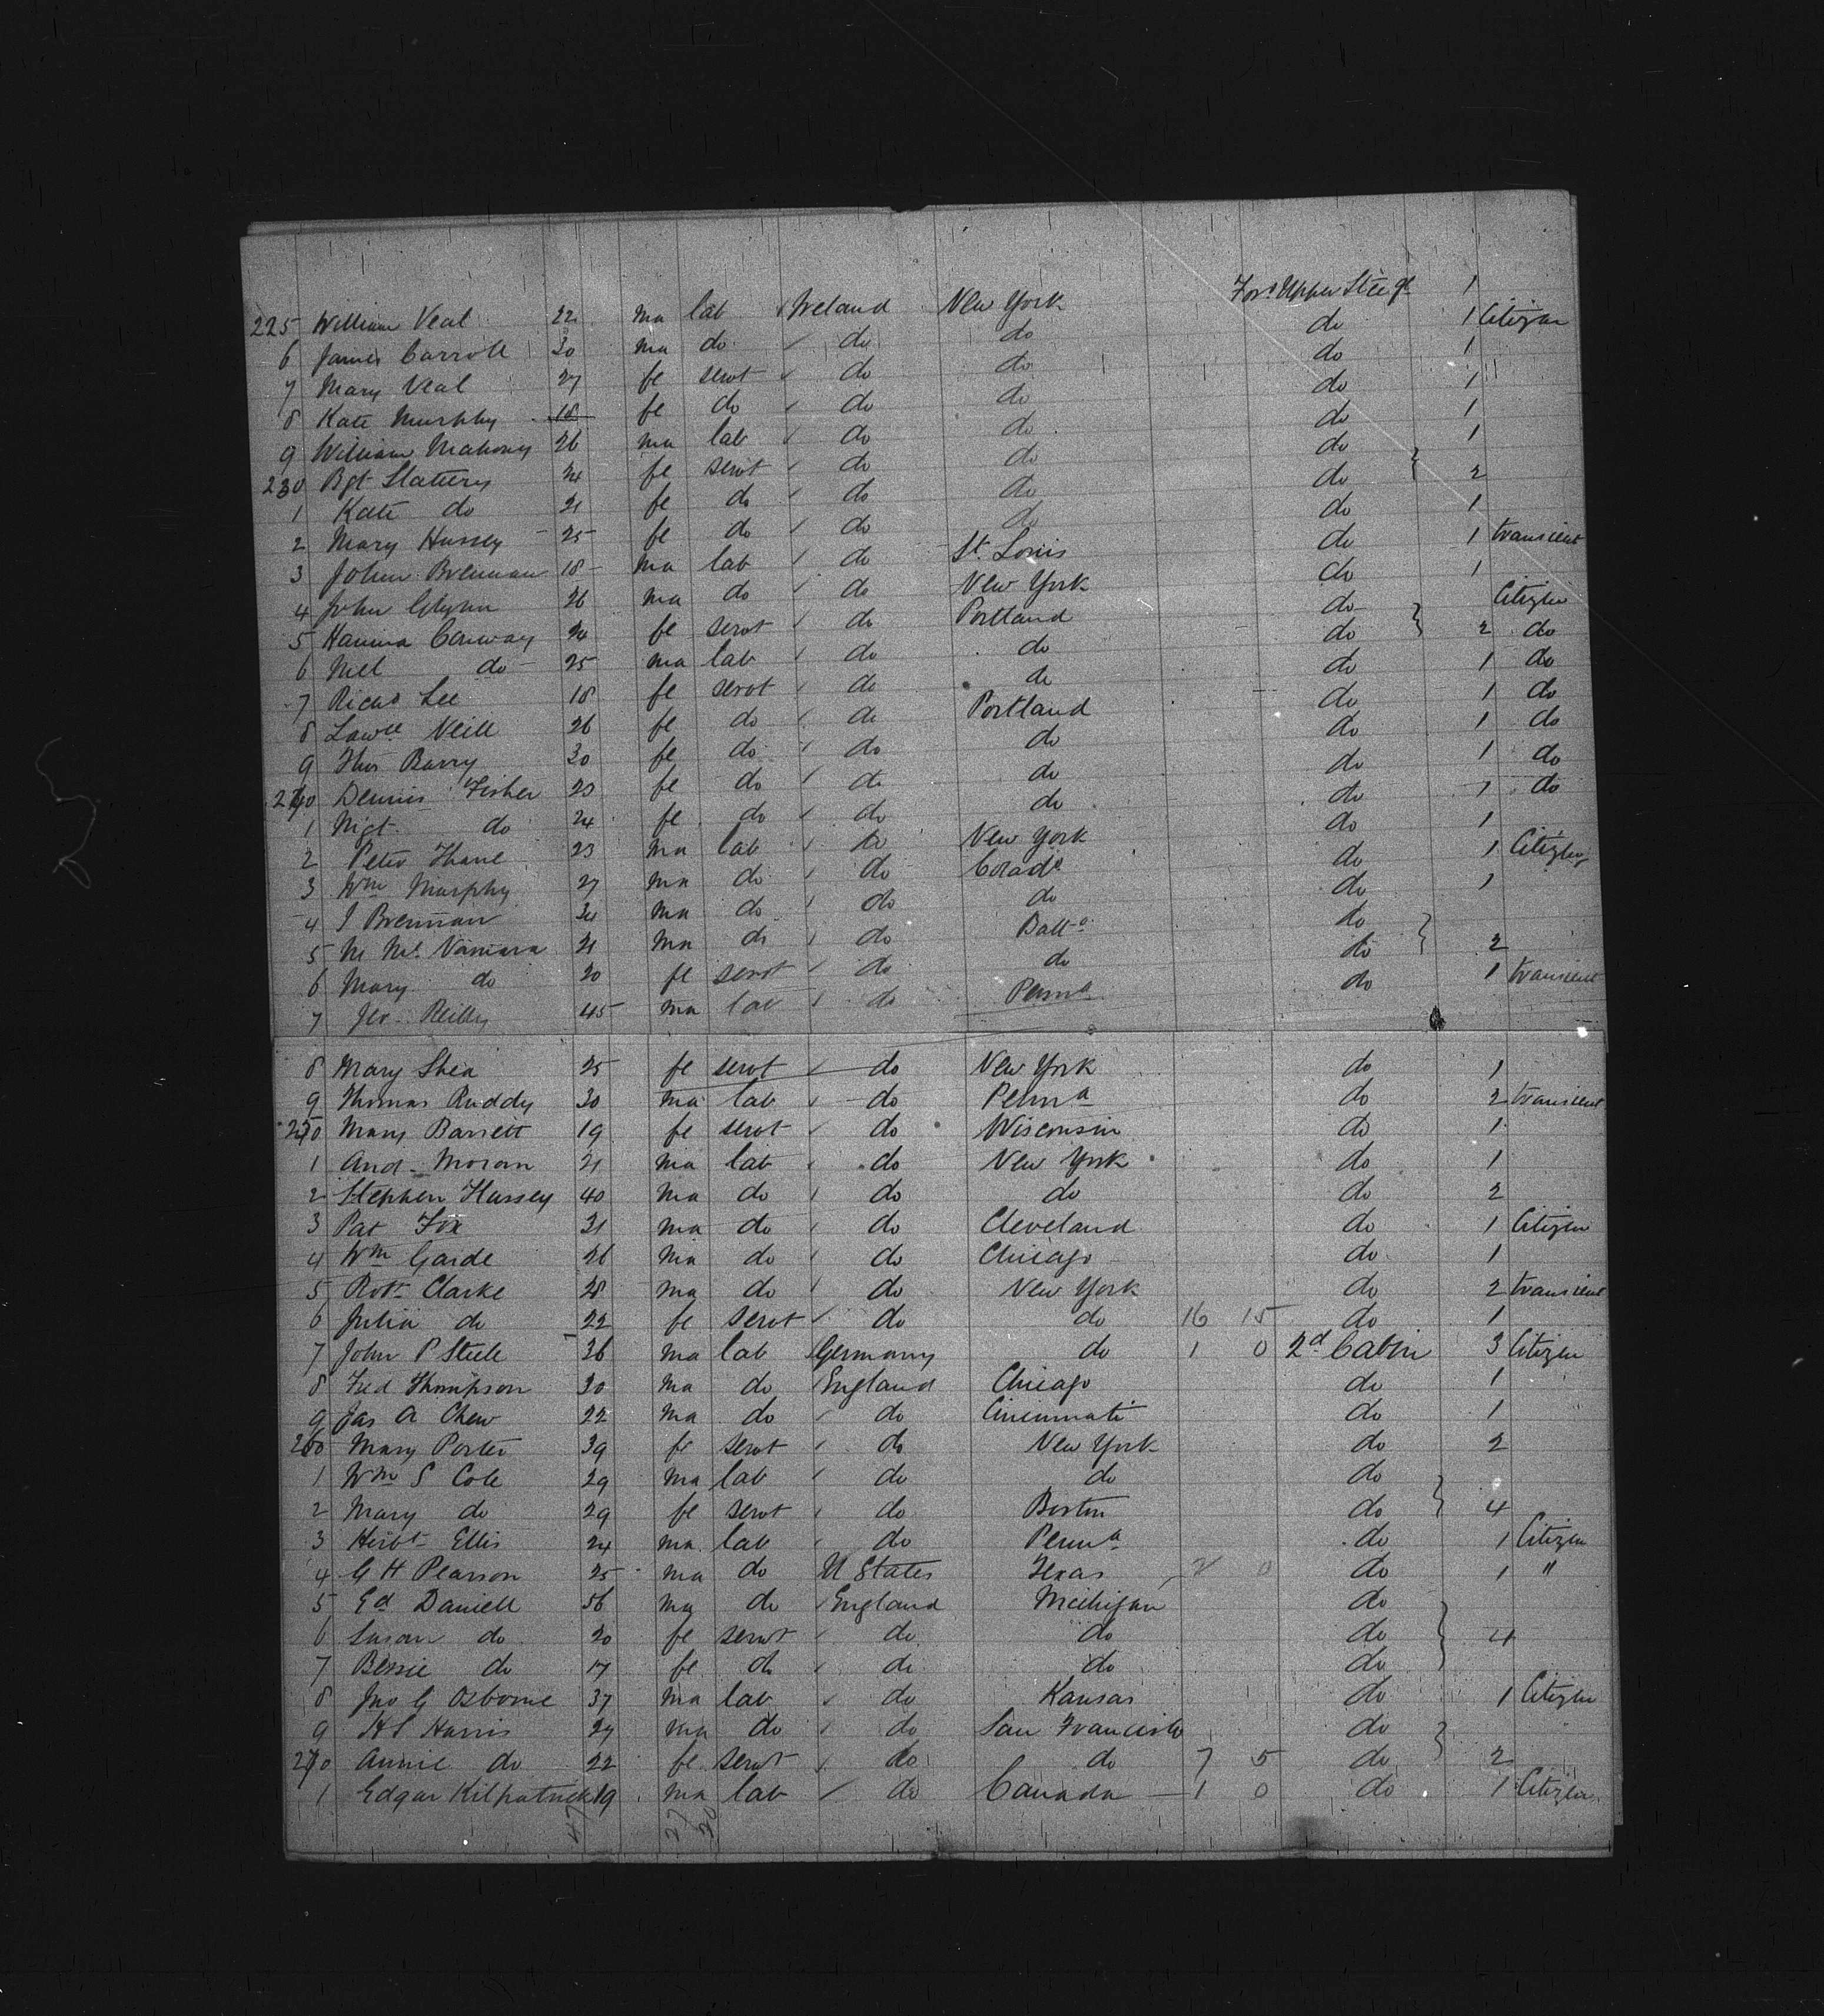 225 William Veal 22 ma lab Ireland New York Ford Upper Steege 1
6 James Carroll 30 ma do do do do 1 Citizen
7 Mary Veal 27 fe servt do do do 1
8 Kate Murphy 18 fe do do do do 1
9 William Mahony 26 ma lab do do do 1
230 Bgt Slattery 24 fe servt do do do
1 Kate do 21 fe do do do do 2
2 Mary Hussey 25 fe do do do do 1
3 John Brennan 18 ma lab do St. Louis do 1 transient
4 John Glynn 26 ma do do New York do 1
5 Hanna Conway 20 fe servt do Portland do Citizen
6 Mcl do 25 ma lab do do do 2 do
7 Ricd Lee 18 fe servt do do do 1 do
8 Lawce Neill 26 fe do do Portland do 1 do
9 Thos Barry 30 fe do do do do 1 do
240 Dennis Fisher 23 fe do do do do 1 do
1 Mgt do 24 fe do do do do 1 do
2 Peter Thane 23 ma lab do New York do 1
3 Wm Murphy 27 ma do do Corado do 1 Citizen
4 J Brennan 34 ma do do do do 1
5 M Mc Namara 21 ma do do Balto do
6 Mary do 20 fe servt do do do 2
7 Jer Reilly 45 ma lab do Penna do 1 transient
8 Mary Shea 25 fe servt do New York do 1
9 Thomas Ruddy 30 ma lab do Penna do 2 transient
250 Mary Barrett 19 fe servt do Wisconsin do 1
1 And Moran 21 ma lab do New York do 1
2 Stephen Hussey 40 ma do do do do 2
3 Pat Fox 31 ma do do Cleveland do 1 Citizen
4 Wm Garde 26 ma do do Chicago do 1
5 Robt Clarke 28 ma do do New York do 2 transient
6 Julia do 22 fe servt do do 16 15 do 1
7 John P Steele 36 ma lab Germany do 1 0 2d Cabin 3 Citizen
8 Fred Thompson 30 ma do England Chicago do 1
9 Jas A Chew 22 ma do do Cincinnati do 1
260 Mary Porter 39 fe servt do New York do 2
1 Wm S Cole 29 ma lab do do do
2 Mary do 29 fe servt do Boston do 4
3 Herbt Ellis 24 ma lab do Penna do 1 Citizen
4 G H Pearson 25 ma do U States Texas 2 0 do 1 "
5 Ed Daniell 56 ma do England Michigan do
6 Susan do 20 fe servt do do do 4
7 Bessie do 17 fe do do do do
8 Jno G Osborne 37 ma lab do Kansas do 1 Citizen
9 H C Harris 27 ma do do San Francisco do
270 Annie do 22 fe servt do do 7 5 do 2
1 Edgar Kilpatrick 19 ma lab do Canada 1 0 do 1 Citizen
47 27 20